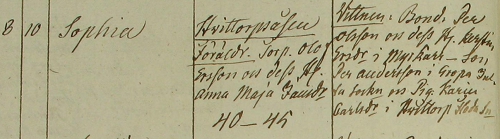 8 10 Sophia
Hvittorpsåsen
Föräldr. Torp. Olof
Ersson och dess H.
Anna Maja Jansdr
40-45
Vittnen: Bond. Per
Olsson och dess H. Kerstin
Ersdr i Myrkarr
Per Andersson i
socken och Pig. Karin
Carlsdr i Hvittorp